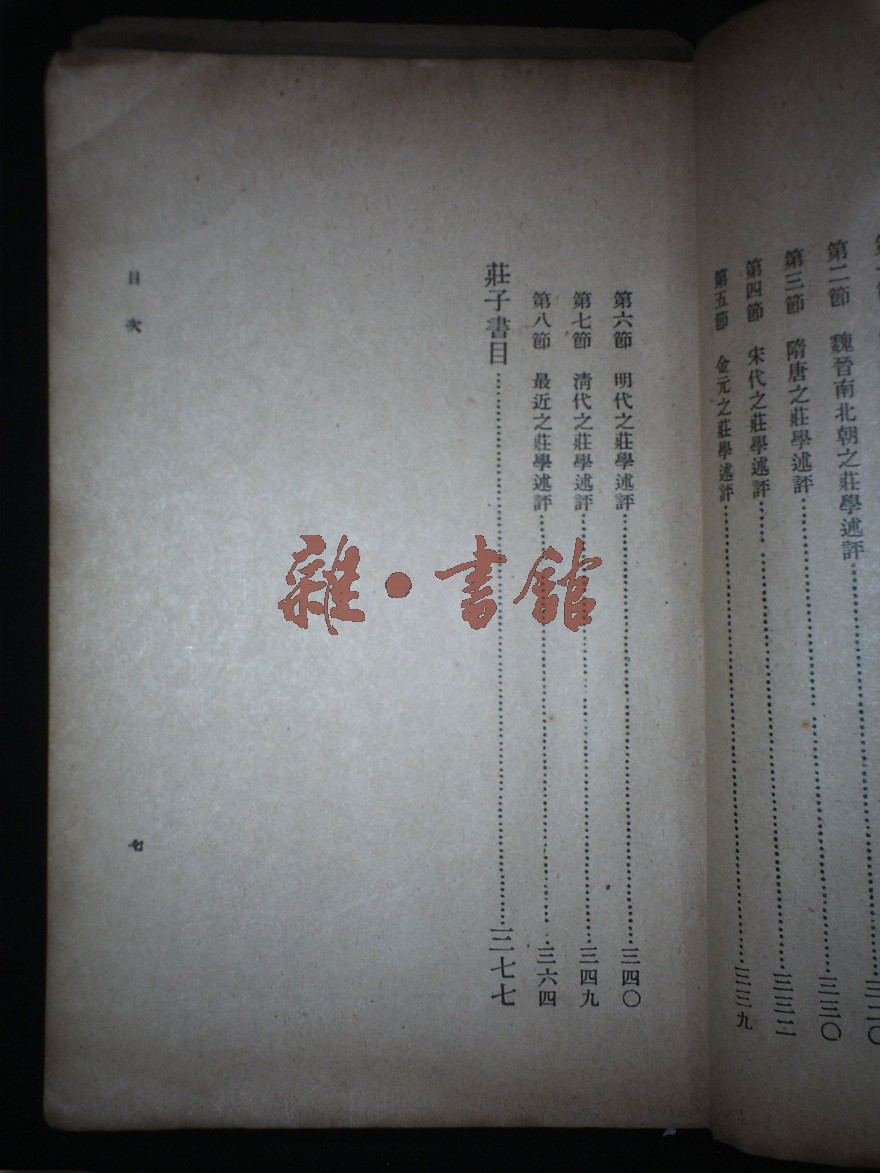 第二節　魏晉南北朝之莊學述評……三二〇
第三節　隋唐之莊學述評……三三〇
第四節　宋代之莊學述評……三三二
第五節　金元之莊學述評……三三九
第六節　明代之莊學述評……三四〇
第七節　清代之莊學述評……三四九
第八節　最近之莊學述評……三六四
莊子書目……三七七
目次
七
雜·書館